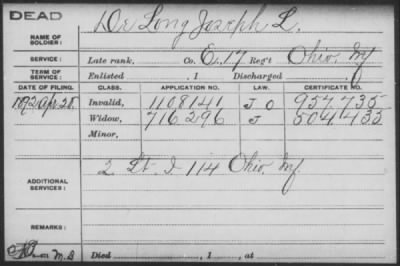 DEAD
NAME OF SOLDIER: De Long Joseph L.
SERVICE: Late rank, Co. E. 17 Reg't Ohio Inf
TERM OF SERVICE: Enlisted , 1 Discharged , 1
DATE OF FILING. CLASS. APPLICATION NO. LAW. CERTIFICATE NO.
1892 Apr. 28. Invalid, 1108141 J O 957.735
Widow, 716.296 J 504.435
Minor,
ADDITIONAL SERVICES: 2 Lt. I 114 Ohio Inf.
REMARKS:
M.B Died , 1 , at